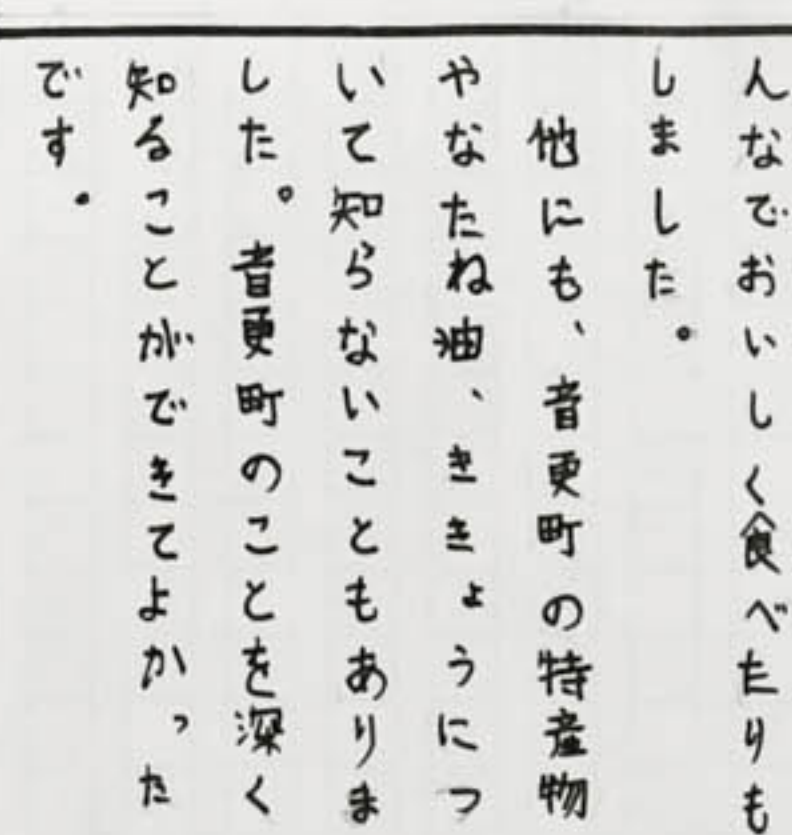 んなでおいしく食べたりも
しました。
他にも、音更町の特産物
やなたね油、ききょうにつ
いて知らないこともありま
した。音更町のことを深く
知ることができてよかった
です。